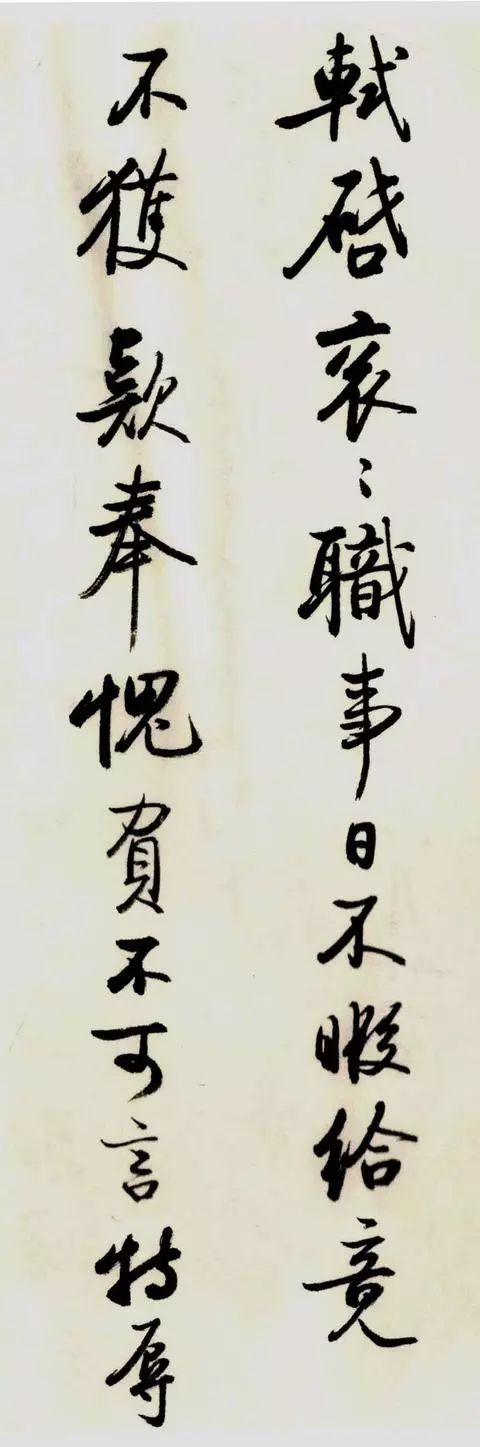 軾啓袞〻職事日不暇給竟
不獲款奉愧負不可言特辱